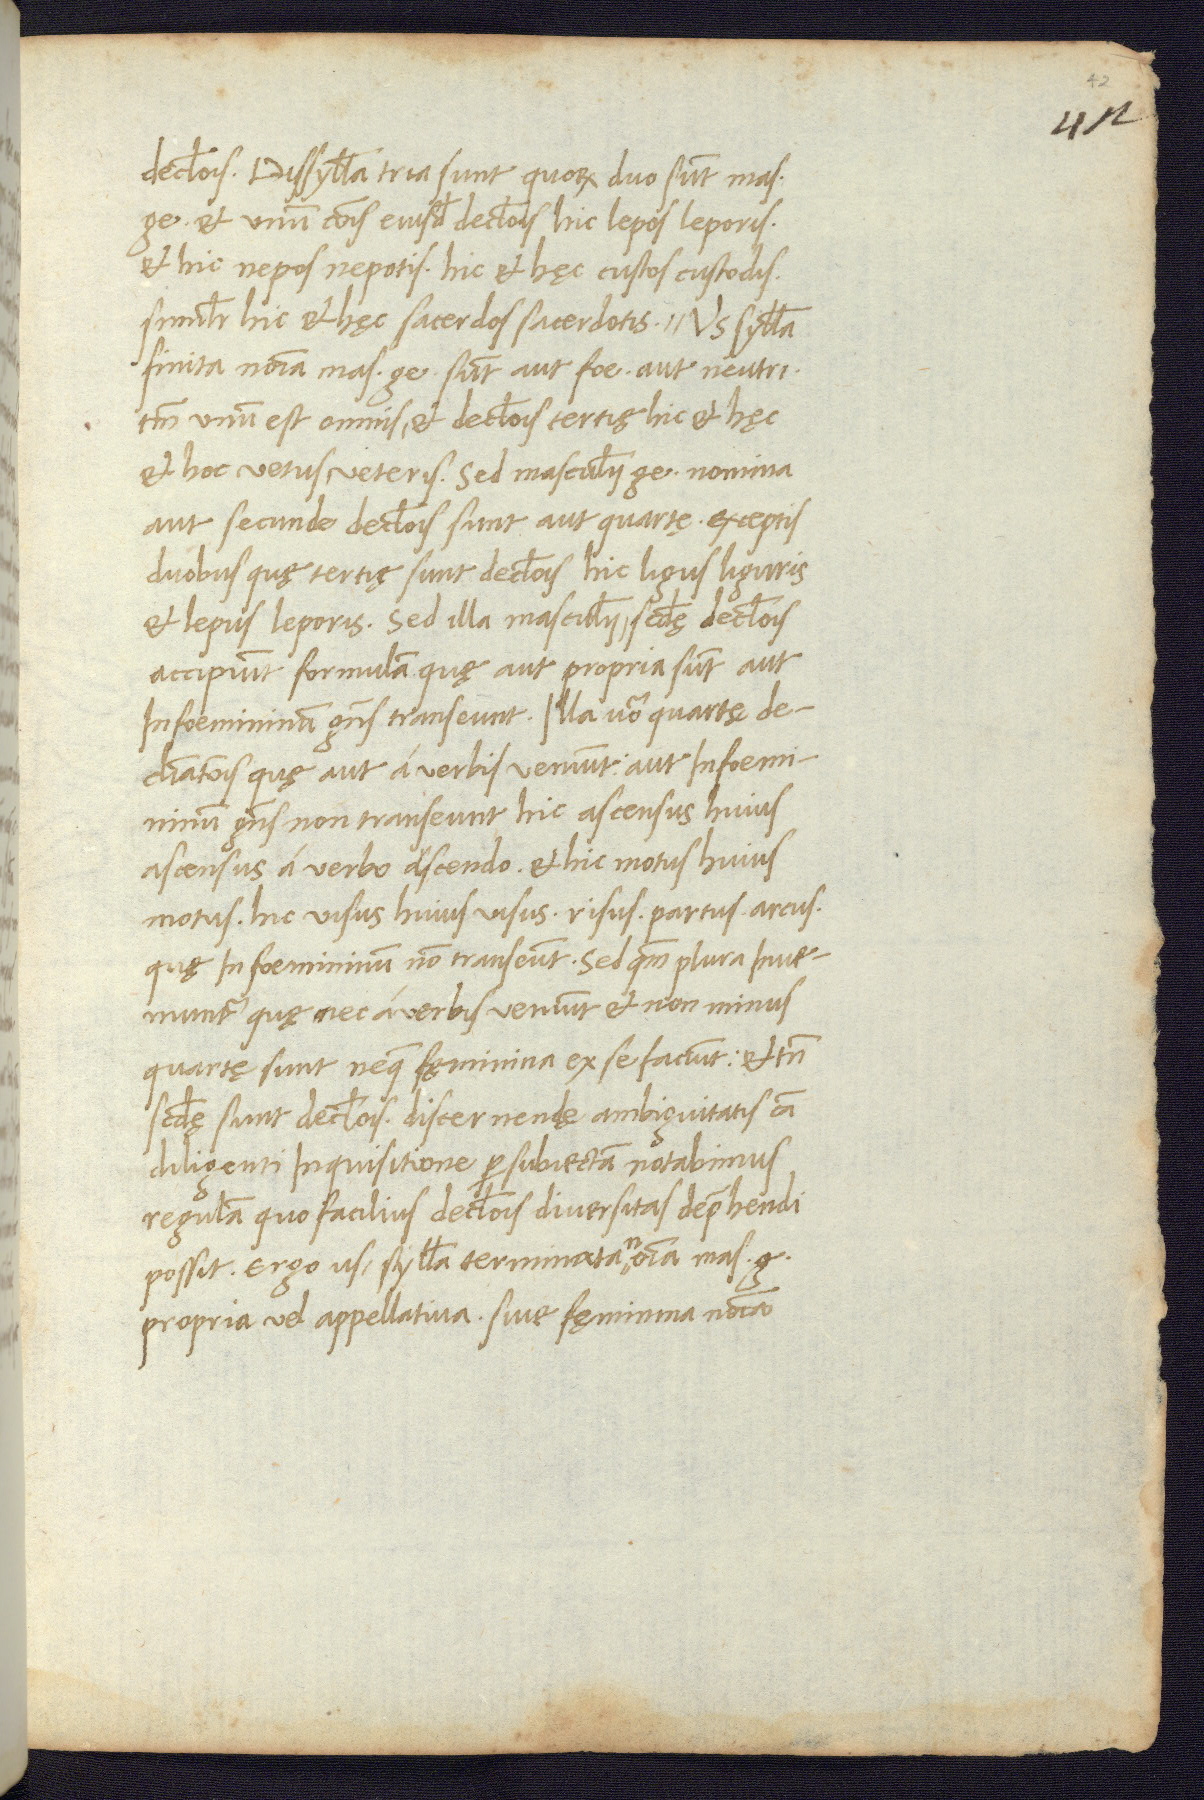 42
42
decl̄ois. Dissyll̄a tria sunt quoꝝ duo sūt mas.
ge. et vnū cōis eiusd̄ decl̄ois hic lepos leporis.
et hic nepos nepotis. hic et hęc custos custodis.
simil̄r hic et hęc sacerdos sacerdotis. // Vs syll̄a
finita noīa mas. ge. sūt aut foe. aut neutri.
tm̄ vnū est omnis, et decl̄ois tertię hic et hęc
et hoc vetus, veteris. Sed mascul̄ij ge. nomina
aut secunde decl̄ois sunt aut quartę. exceptis
duobus quę tertię sunt decl̄ois hic ligus liguris
et lepus leporis. Sed illa mascul̄ij, scd̄ę decl̄ois
accipiūt formulā quę aut propria sūt aut
In foemininū gn̄s transeunt. Illa uō quartę de-
clīatōis quę aut á verbis veniūt: aut In foemi-
ninū gn̄s non transeunt hic ascensus huius
ascensus á verbo ascendo. et hic motus huius
motus. hic visus huius visus. risus. partus. arcus.
quę In foemininū nō transeūt. Sed qm̄ plura Inue-
niunt᷑ quę nec á verbis veniūt et non minus
quartę sunt neq̄ fęminina ex se faciūt: et tn̄
scd̄ę sunt decl̄ois. discernendę ambiguitatis cā
diligenti Inquisitione ꝑ subiectā notabimus
regulā quo facilius decl̄ois diuersitas dep̄hendi
possit. Ergo us, syll̄a terminata noīa mas. g.
propria vel appellatiua. siue fęminina noīa